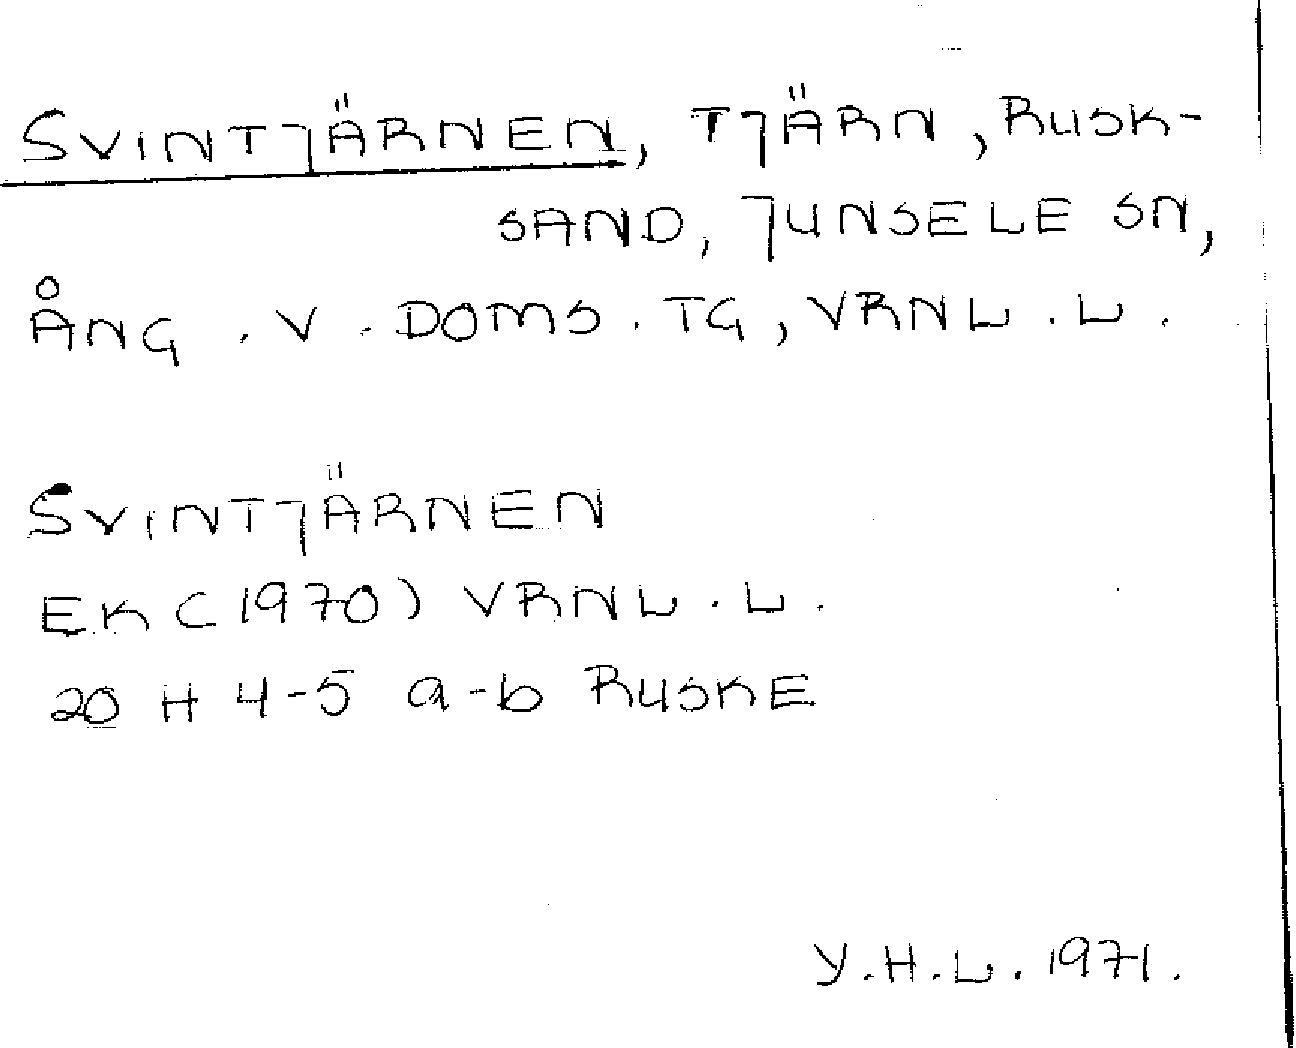 SVINTJÄRNEN, TJÄRN, RUSK-
SAND, JUNSELE SN,
ÅNG. V. DOMS. TG, VRNL. L.
SVINTJÄRNEN
EK (1970) VRNL. L.
20 H 4-5 a-b RUSKE
Y.H.L. 1971.